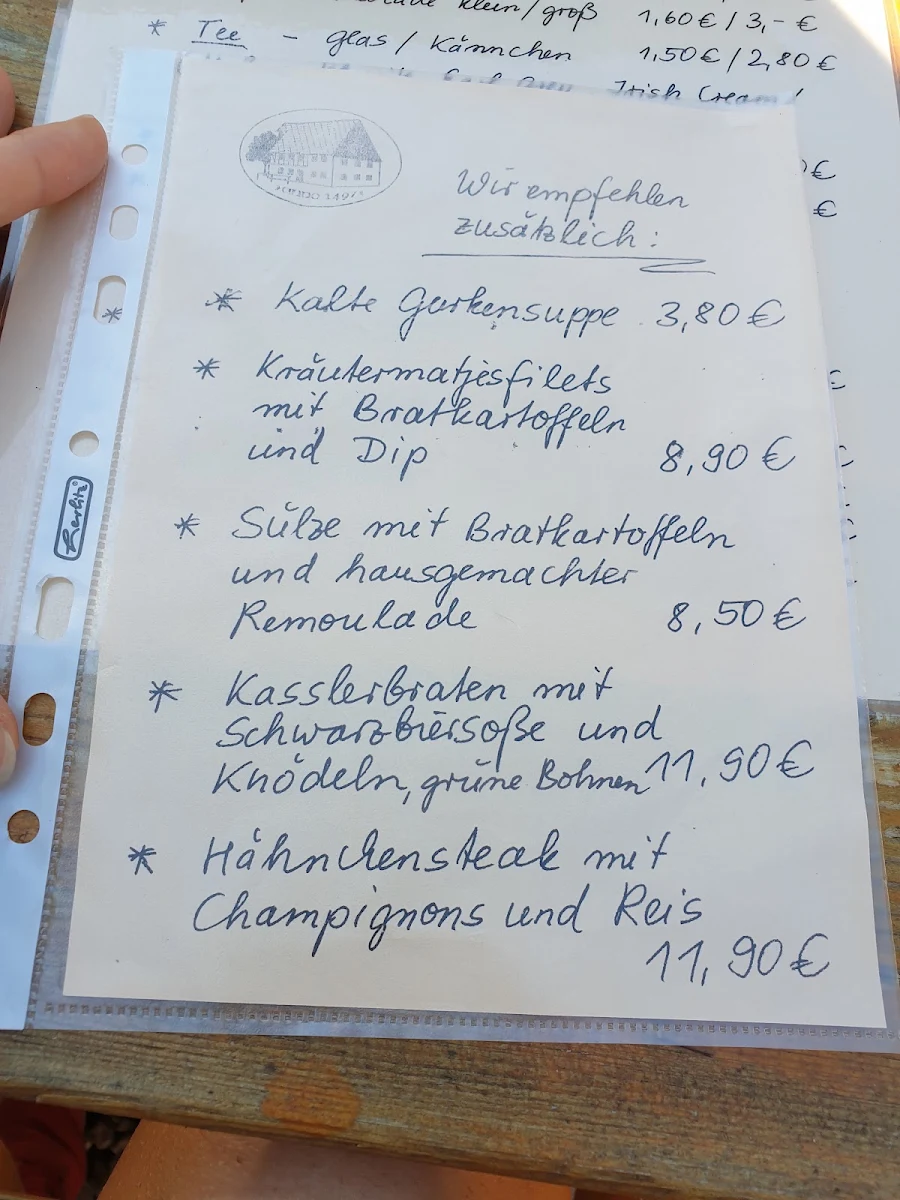 klein/groß 1,60 € / 3,- €
* Tee - glas / Kännchen 1,50 € / 2,80 €
Irish Cream /
€
€
Wir empfehlen
zusätzlich :
* Kalte Gurkensuppe 3,80 €
* Kräutermatjesfilets
mit Bratkartoffeln
und Dip 8,90 €
* Sülze mit Bratkartoffeln
und hausgemachter
Remoulade 8,50 €
* Kasslerbraten mit
Schwarzbiersoße und
Knödeln, grüne Bohnen 11,90 €
* Hähnchensteak mit
Champignons und Reis
11,90 €
*
Herlitz